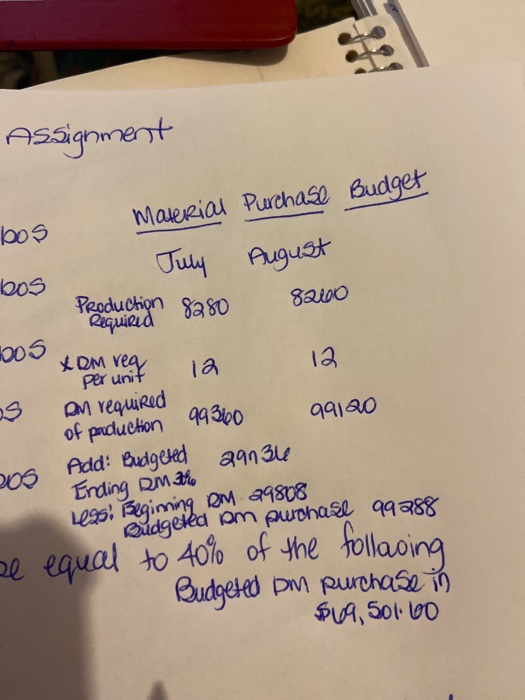 Assignment
Material Purchase Budget
bos
July August
bos
Production Required 8280 8260
bos
x DM req per unit 12 12
s
DM required of production 99360 99120
Add: Budgeted 29736
Ending DM
Less: Beginning DM 29808
Budgeted Dm purchase 99288
equal to 40% of the following
Budgeted DM purchase in
$69,501.60